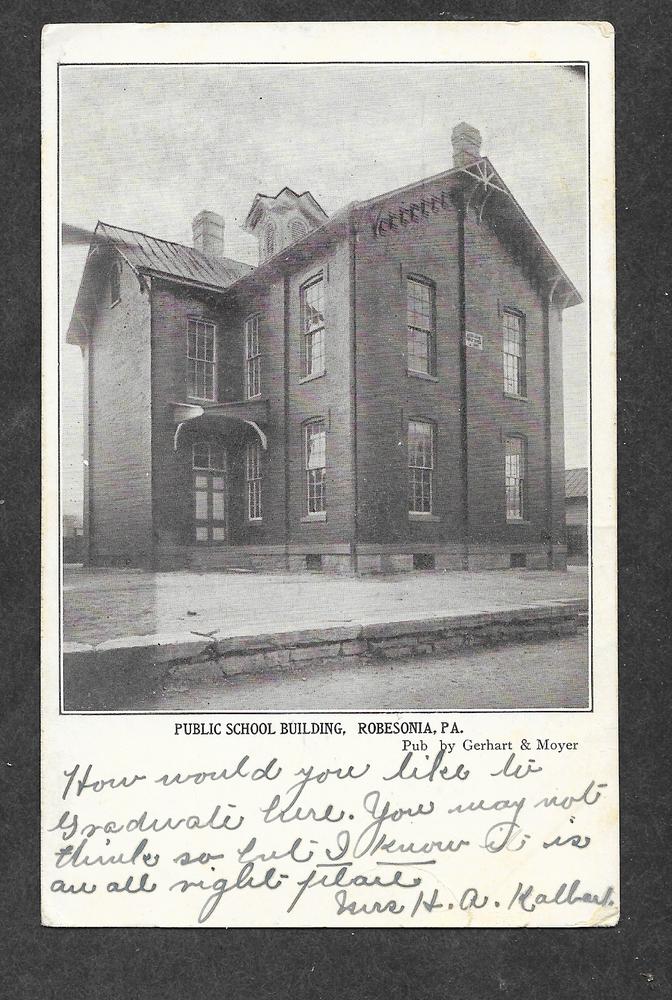 PUBLIC SCHOOL BUILDING, ROBESONIA, PA.
Pub by Gerhart & Moyer
How would you like to
graduate here. You may not
think so but I know it is
an all right place
Mrs H. A. Kalbach.